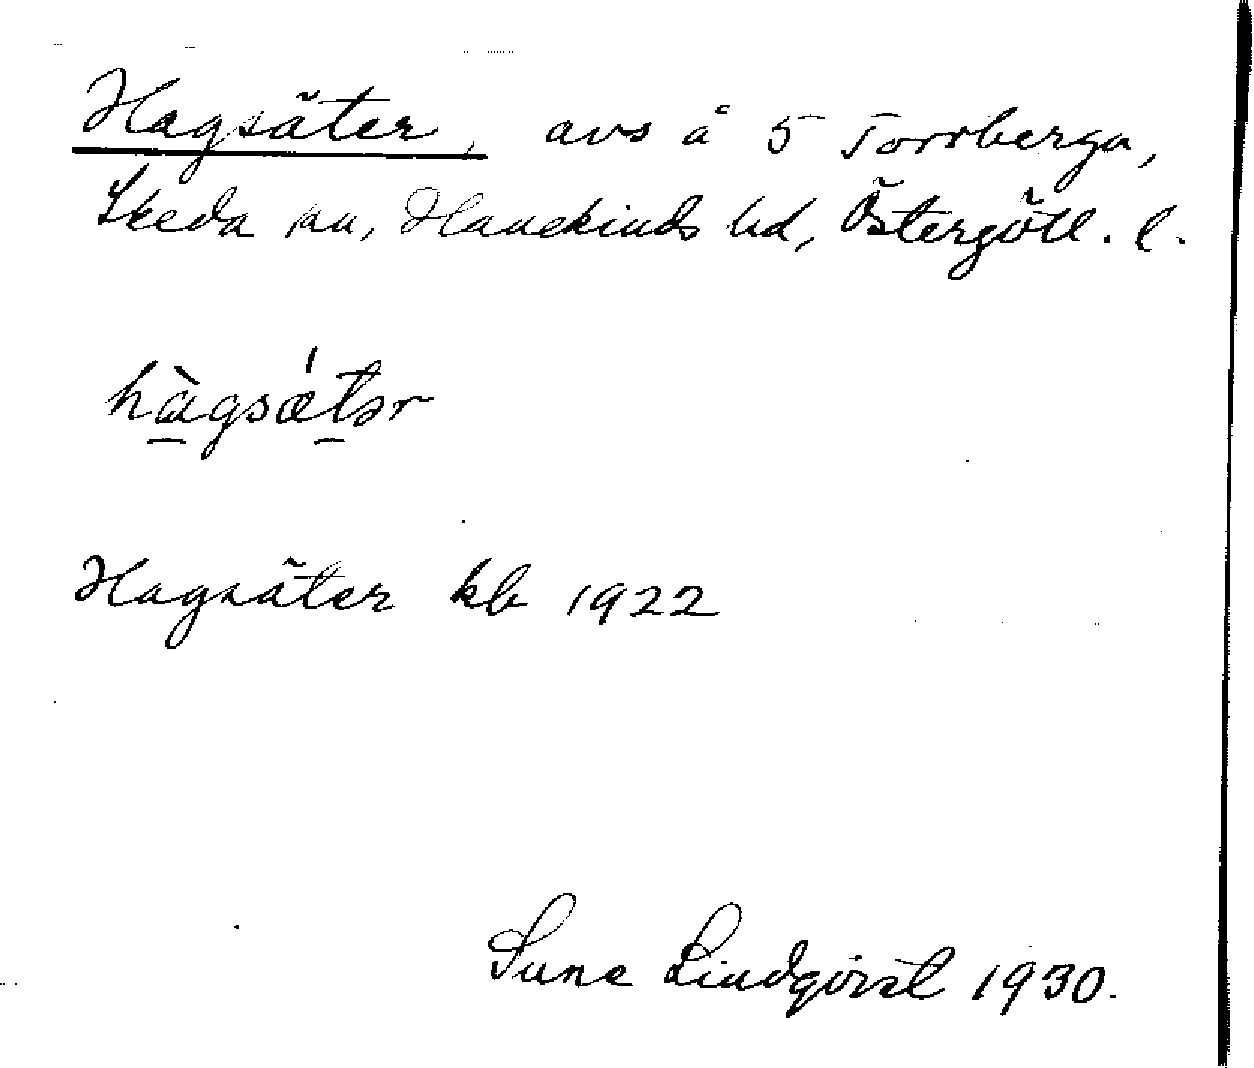 Hagsäter, avs å 5 Torrberga,
Skeda sn, Hanekinds hd, Östergötl. l.
hàgsǽtər
Hagsäter kb 1922
Sune Lindqvist 1930.